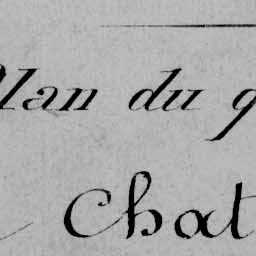 Plan du q
Chat